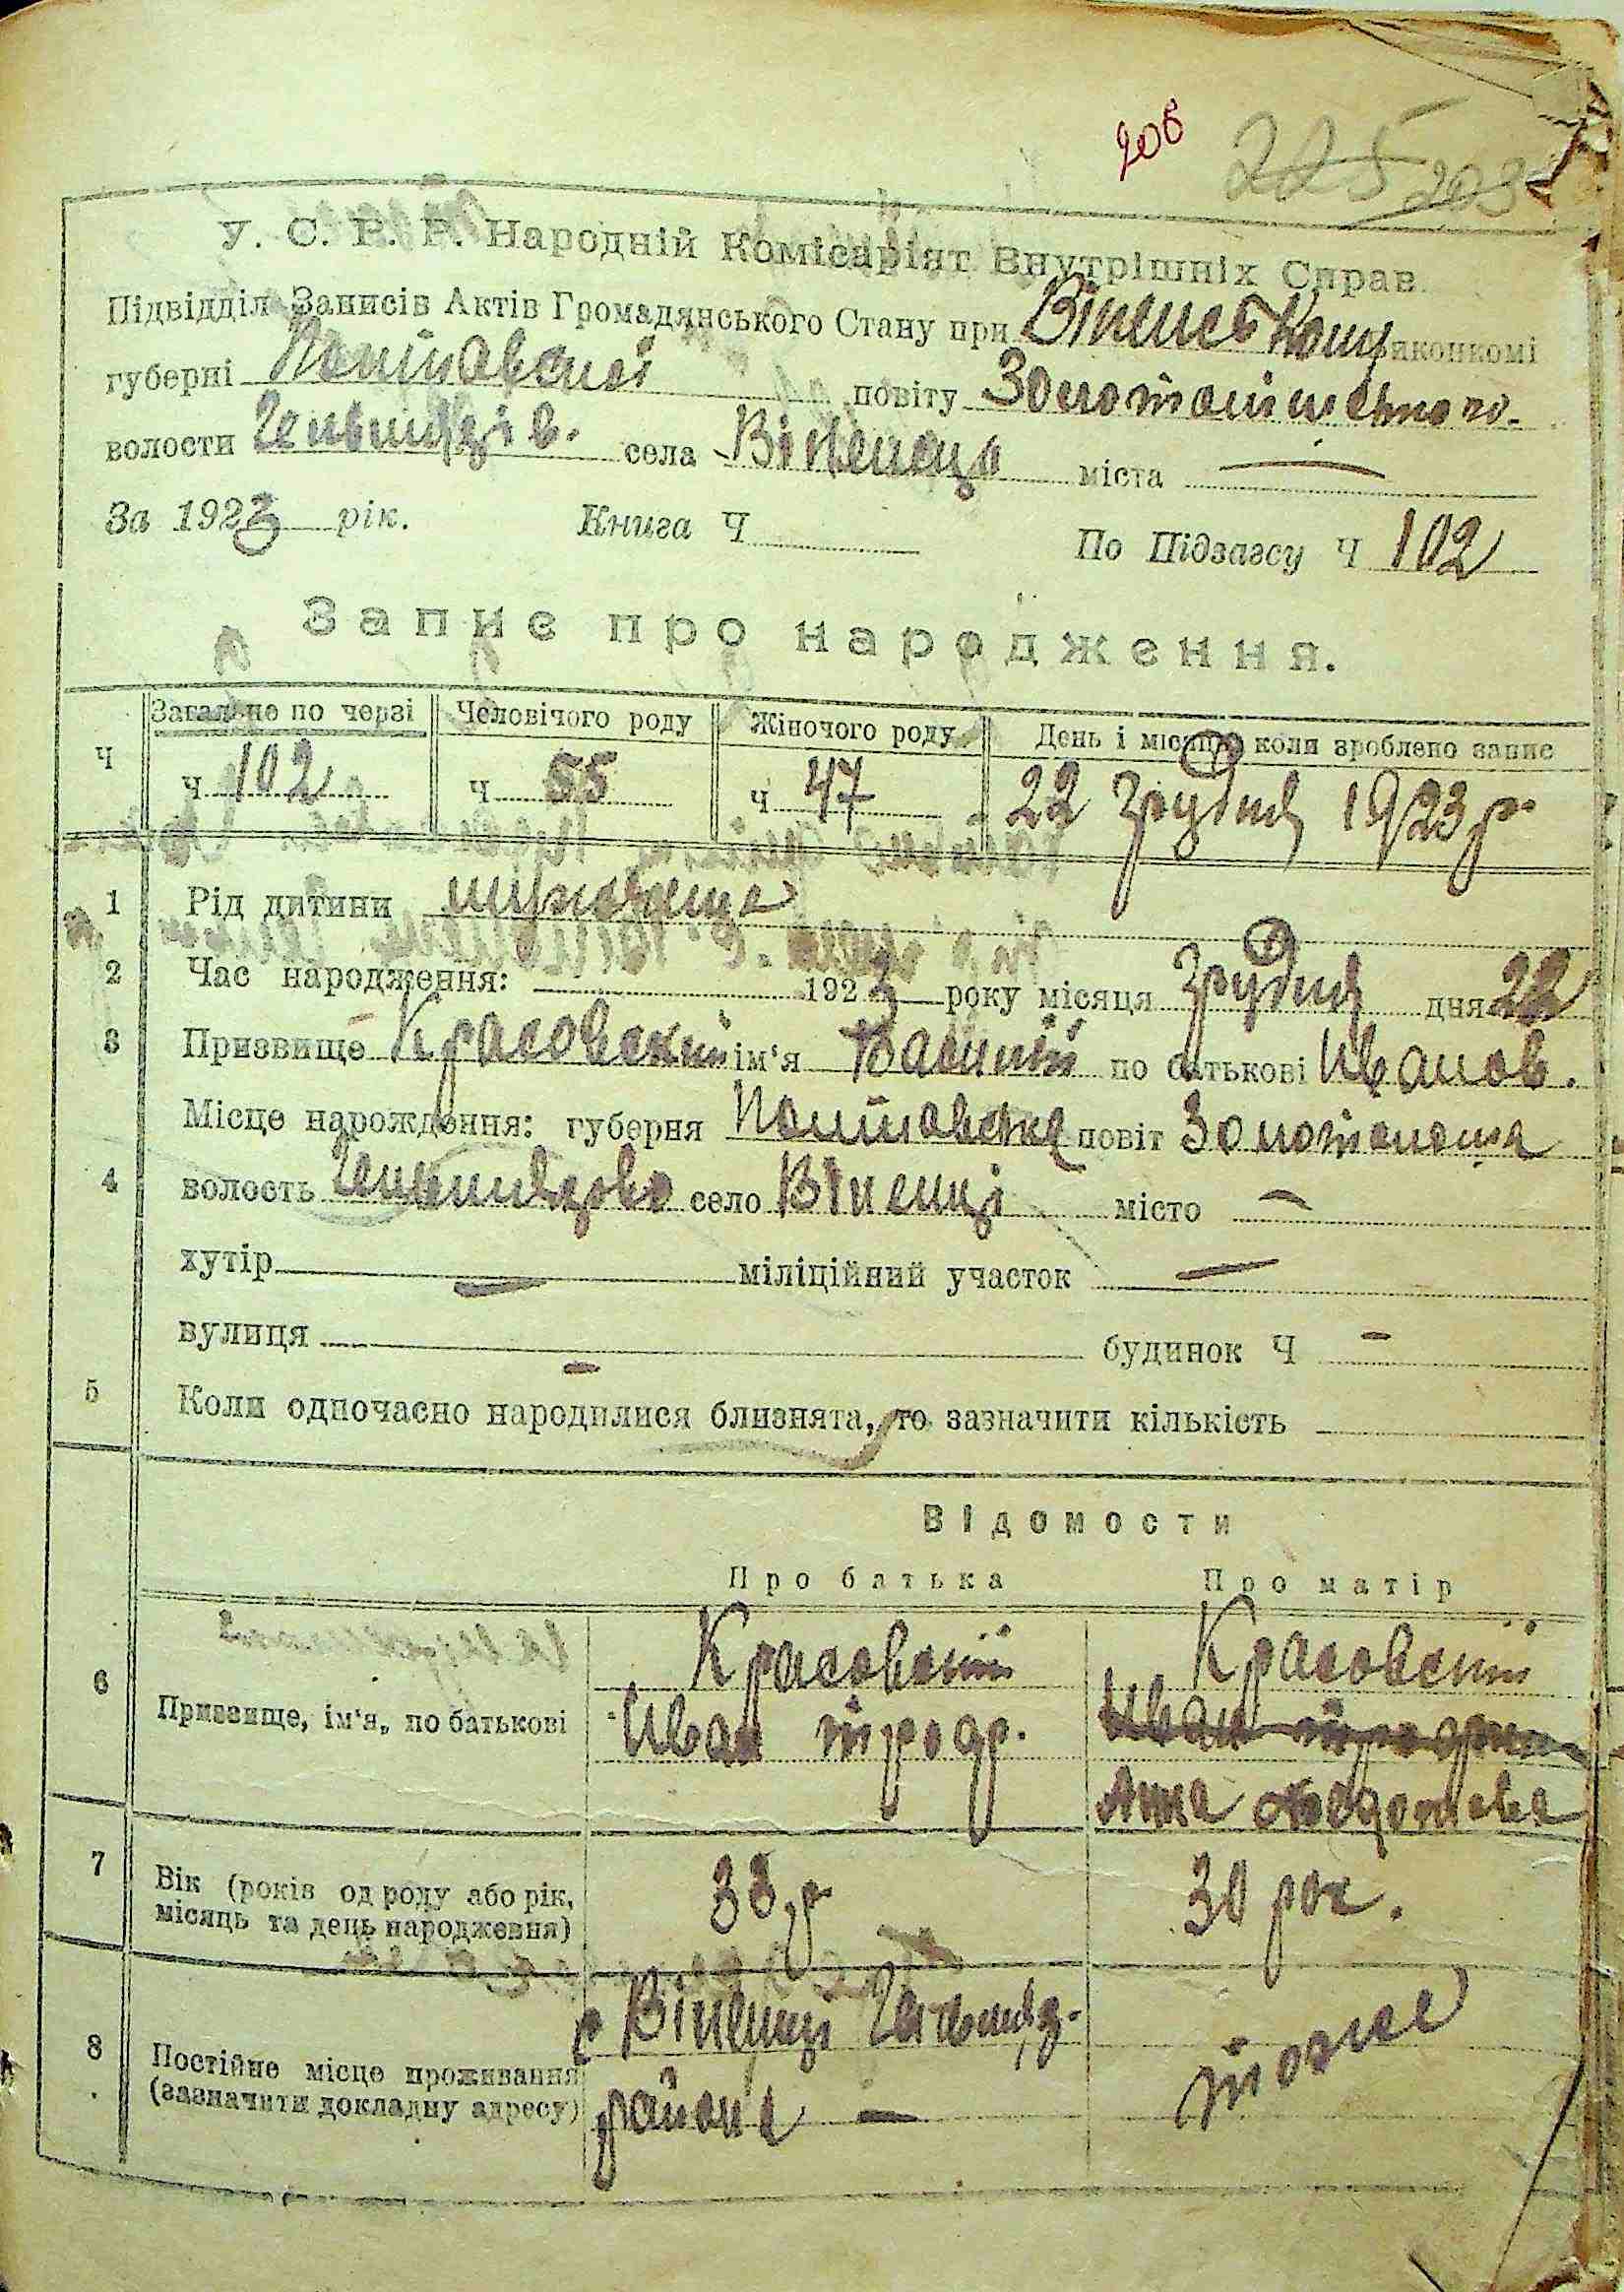 206 225 203
У. С. Р. Р. Народній Комісаріят Внутрішніх Справ.
Підвідділ Записів Актів Громадянського Стану при Вінецькому виконкомі
губерні Полтавської повіту Золотоніського
волости Гельмязів. села Віненець міста —
За 1923 рік. Книга Ч По Підзагсу Ч 102
Запис про народження.
Загальне по черзі Человічого роду Жіночого роду День і місяць коли зроблено запис
Ч Ч 102 Ч 55 Ч 47 22 Грудня 1923 р
1 Рід дитини мужеська
2 Час народження: 1923 року місяця Грудня дня 22
3 Призвище Красовский ім'я Василій по батькові Иванов.
Місце народження: губерня Полтавська повіт Золотоноша
4 волость Гельмязово село Віненці місто —
хутір — міліційний участок —
вулиця — будинок Ч —
5 Коли одночасно народилися близнята, то зазначити кількість
Відомости
Про батька Про матір
6 Призвище, ім'я, по батькові Красовский Красовский
Иван Иван
Анна Федотовна
7 Вік (років од роду або рік, місяць та день народження) 33 р 30 рок.
8 Постійне місце проживання (зазначити докладну адресу) с Віненці Гельмяз. тоже
района —